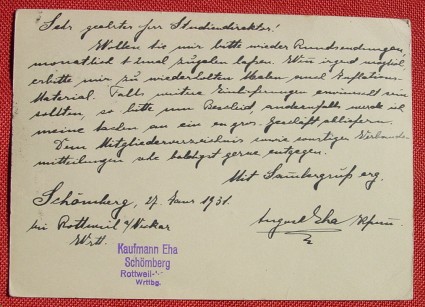 Sehr geehrter Herr Studiendirektor!
Wollen Sie mir bitte wieder Rundsendungen
monatlich 1 mal zugehen lassen. Wenn irgend möglich
erbitte mir zu wiederholten Malen auch Inflations-
Material. Falls weitere Einlieferungen erwünscht sein
sollten, so bitte um Bescheid, andernfalls werde ich
meine Sachen an ein en gros Geschäft abliefern.
Dem Mitgliederverzeichnis sowie sonstigen Verbands-
mitteilungen sehe baldigst gerne entgegen.
Mit Sammlergruß erg.
Schömberg, 27. Janr 1931.
bei Rottweil a/Neckar
Wrtt.
August Eha
Kaufmann Eha
Schömberg
Rottweil
Wrttbg.